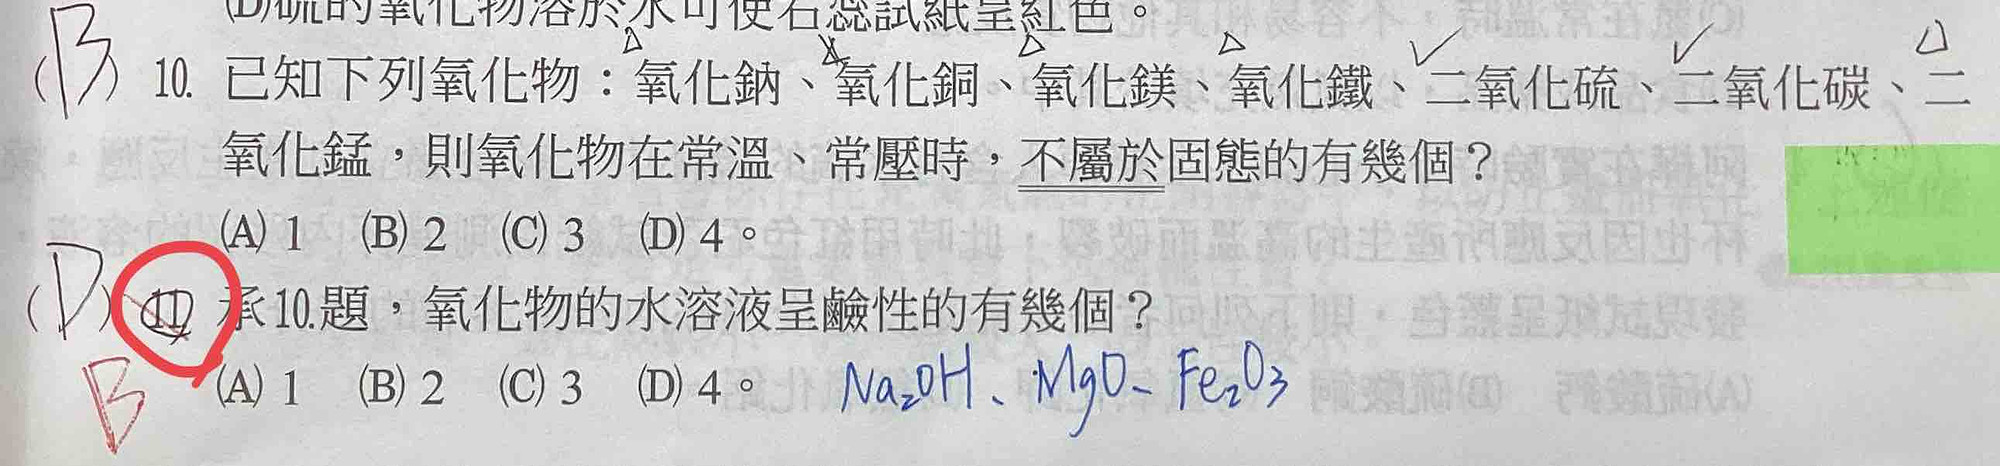 (D)硫的氧化物溶於水可使石蕊試紙呈紅色。
(B) 10. 已知下列氧化物：氧化鈉、氧化銅、氧化鎂、氧化鐵、二氧化硫、二氧化碳、二
氧化錳，則氧化物在常溫、常壓時，不屬於固態的有幾個？
(A) 1 (B) 2 (C) 3 (D) 4。
(D) 11. 承10.題，氧化物的水溶液呈鹼性的有幾個？
B (A) 1 (B) 2 (C) 3 (D) 4。 Na₂OH、MgO、Fe₂O₃